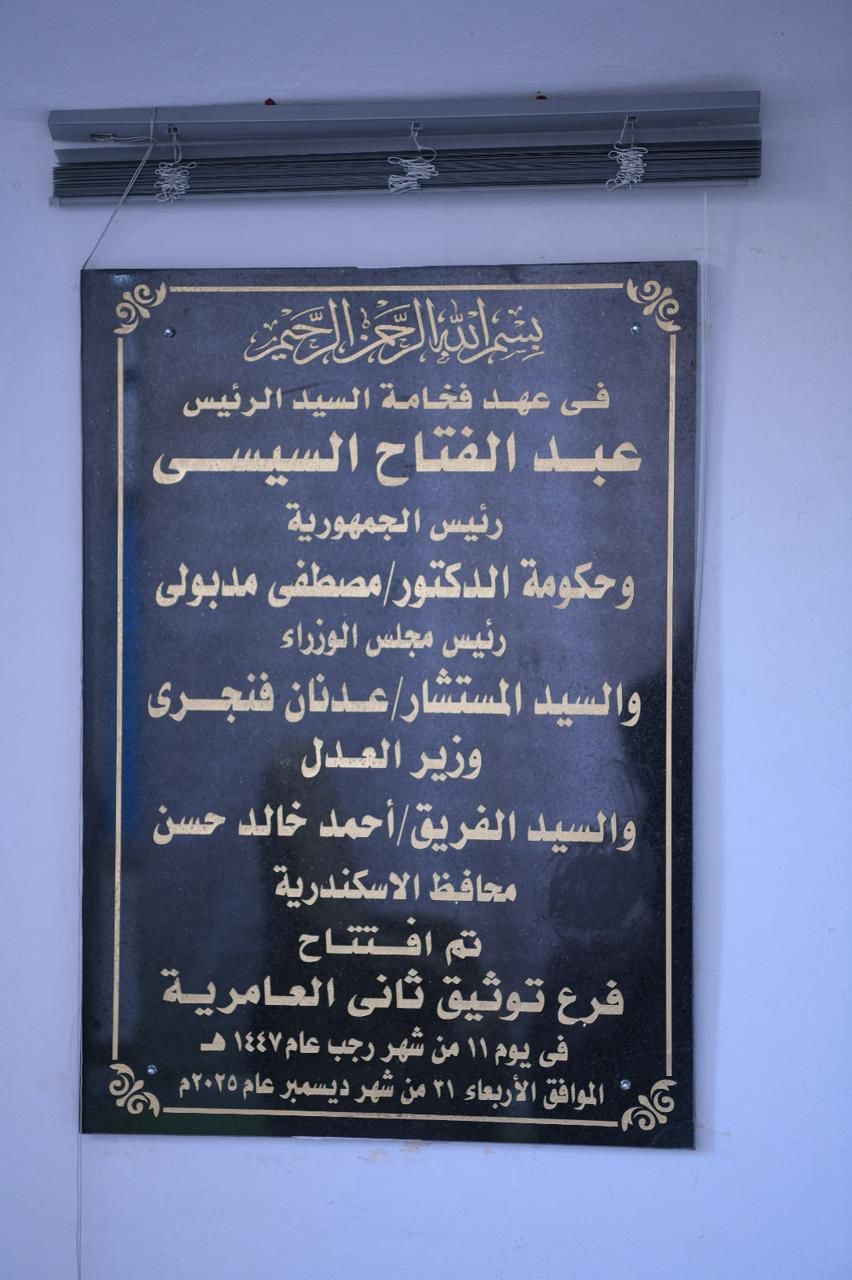 بسم الله الرحمن الرحيم
فى عهد فخامة السيد الرئيس
عبد الفتاح السيسى
رئيس الجمهورية
وحكومة الدكتور/مصطفى مدبولى
رئيس مجلس الوزراء
والسيد المستشار/عدنان فنجرى
وزير العدل
والسيد الفريق/أحمد خالد حسن
محافظ الاسكندرية
تم افتتاح
فرع توثيق ثانى العامرية
فى يوم ١١ من شهر رجب عام ١٤٤٧ هـ
الموافق الأربعاء ٣١ من شهر ديسمبر عام ٢٠٢٥م